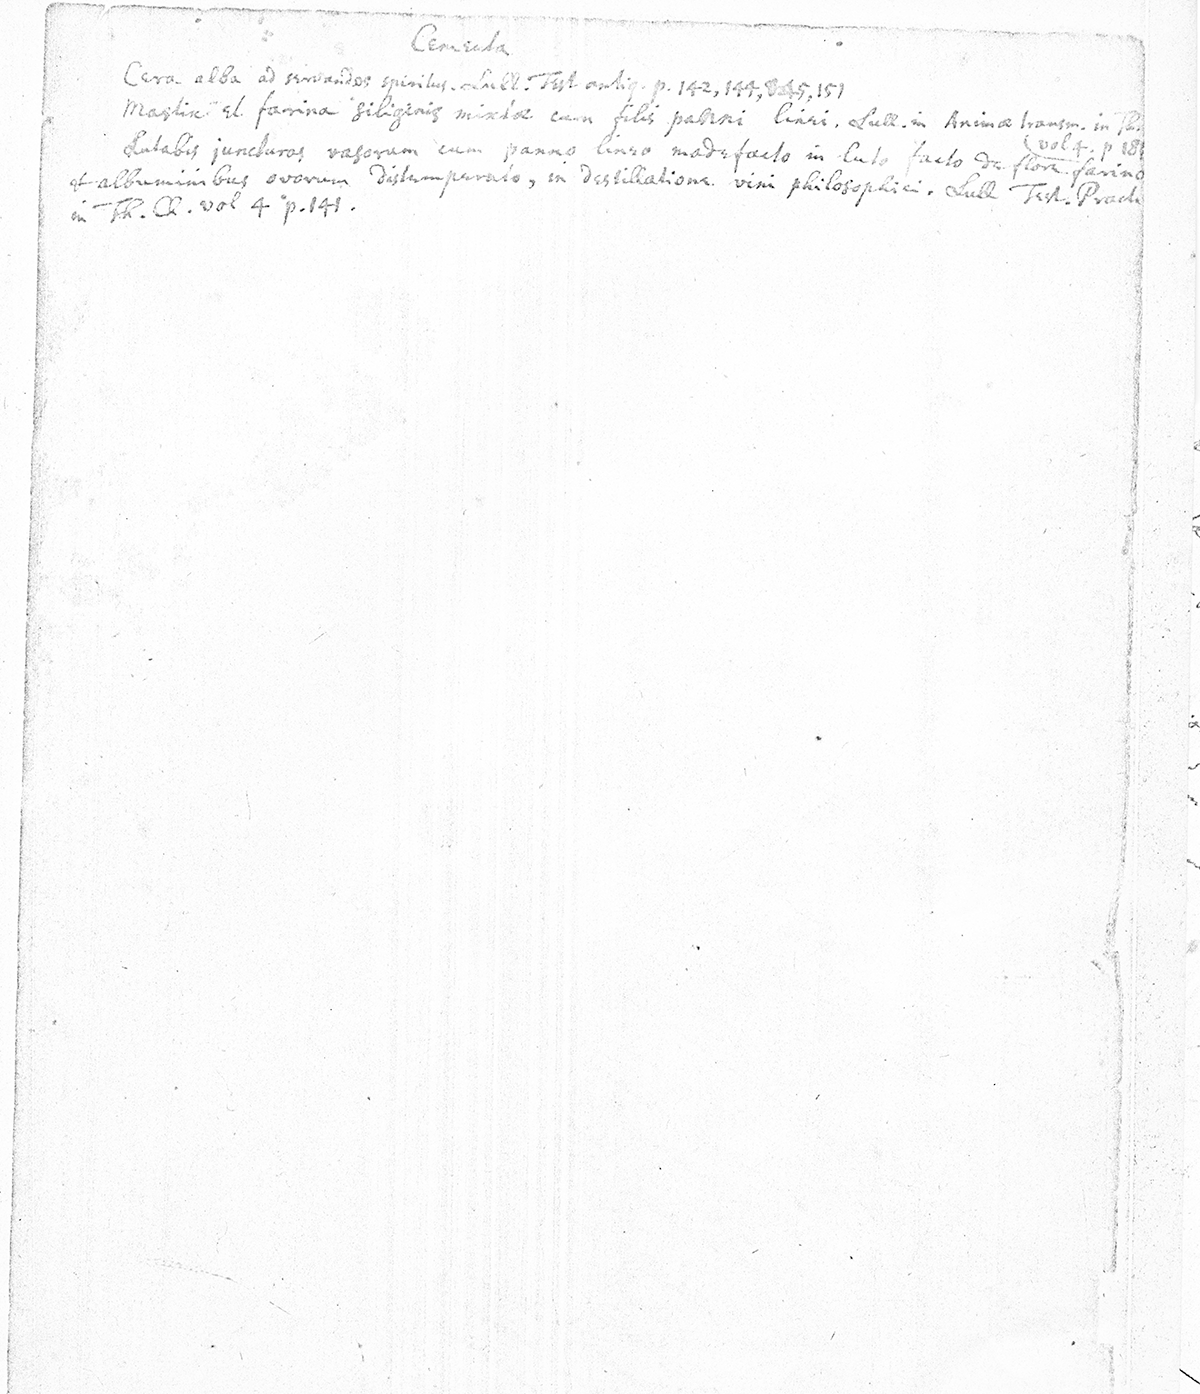 Cementa
Cera alba ad servandos spiritus. Lull. Test antiq. p. 142, 144, 145, 151
Mastix et farina siliginis mixtæ cum filis panni linei. Lull. in Animæ transm. in Th.
(vol 4. p 18
Lutabis juncturas vasorum cum panno lineo madefacto in luto facto de flore farinæ
et albuminibus ovorum distemperato, in destillatione vini philosophici. Lull Test. Pract
in Th. Ch. vol 4 p. 141.